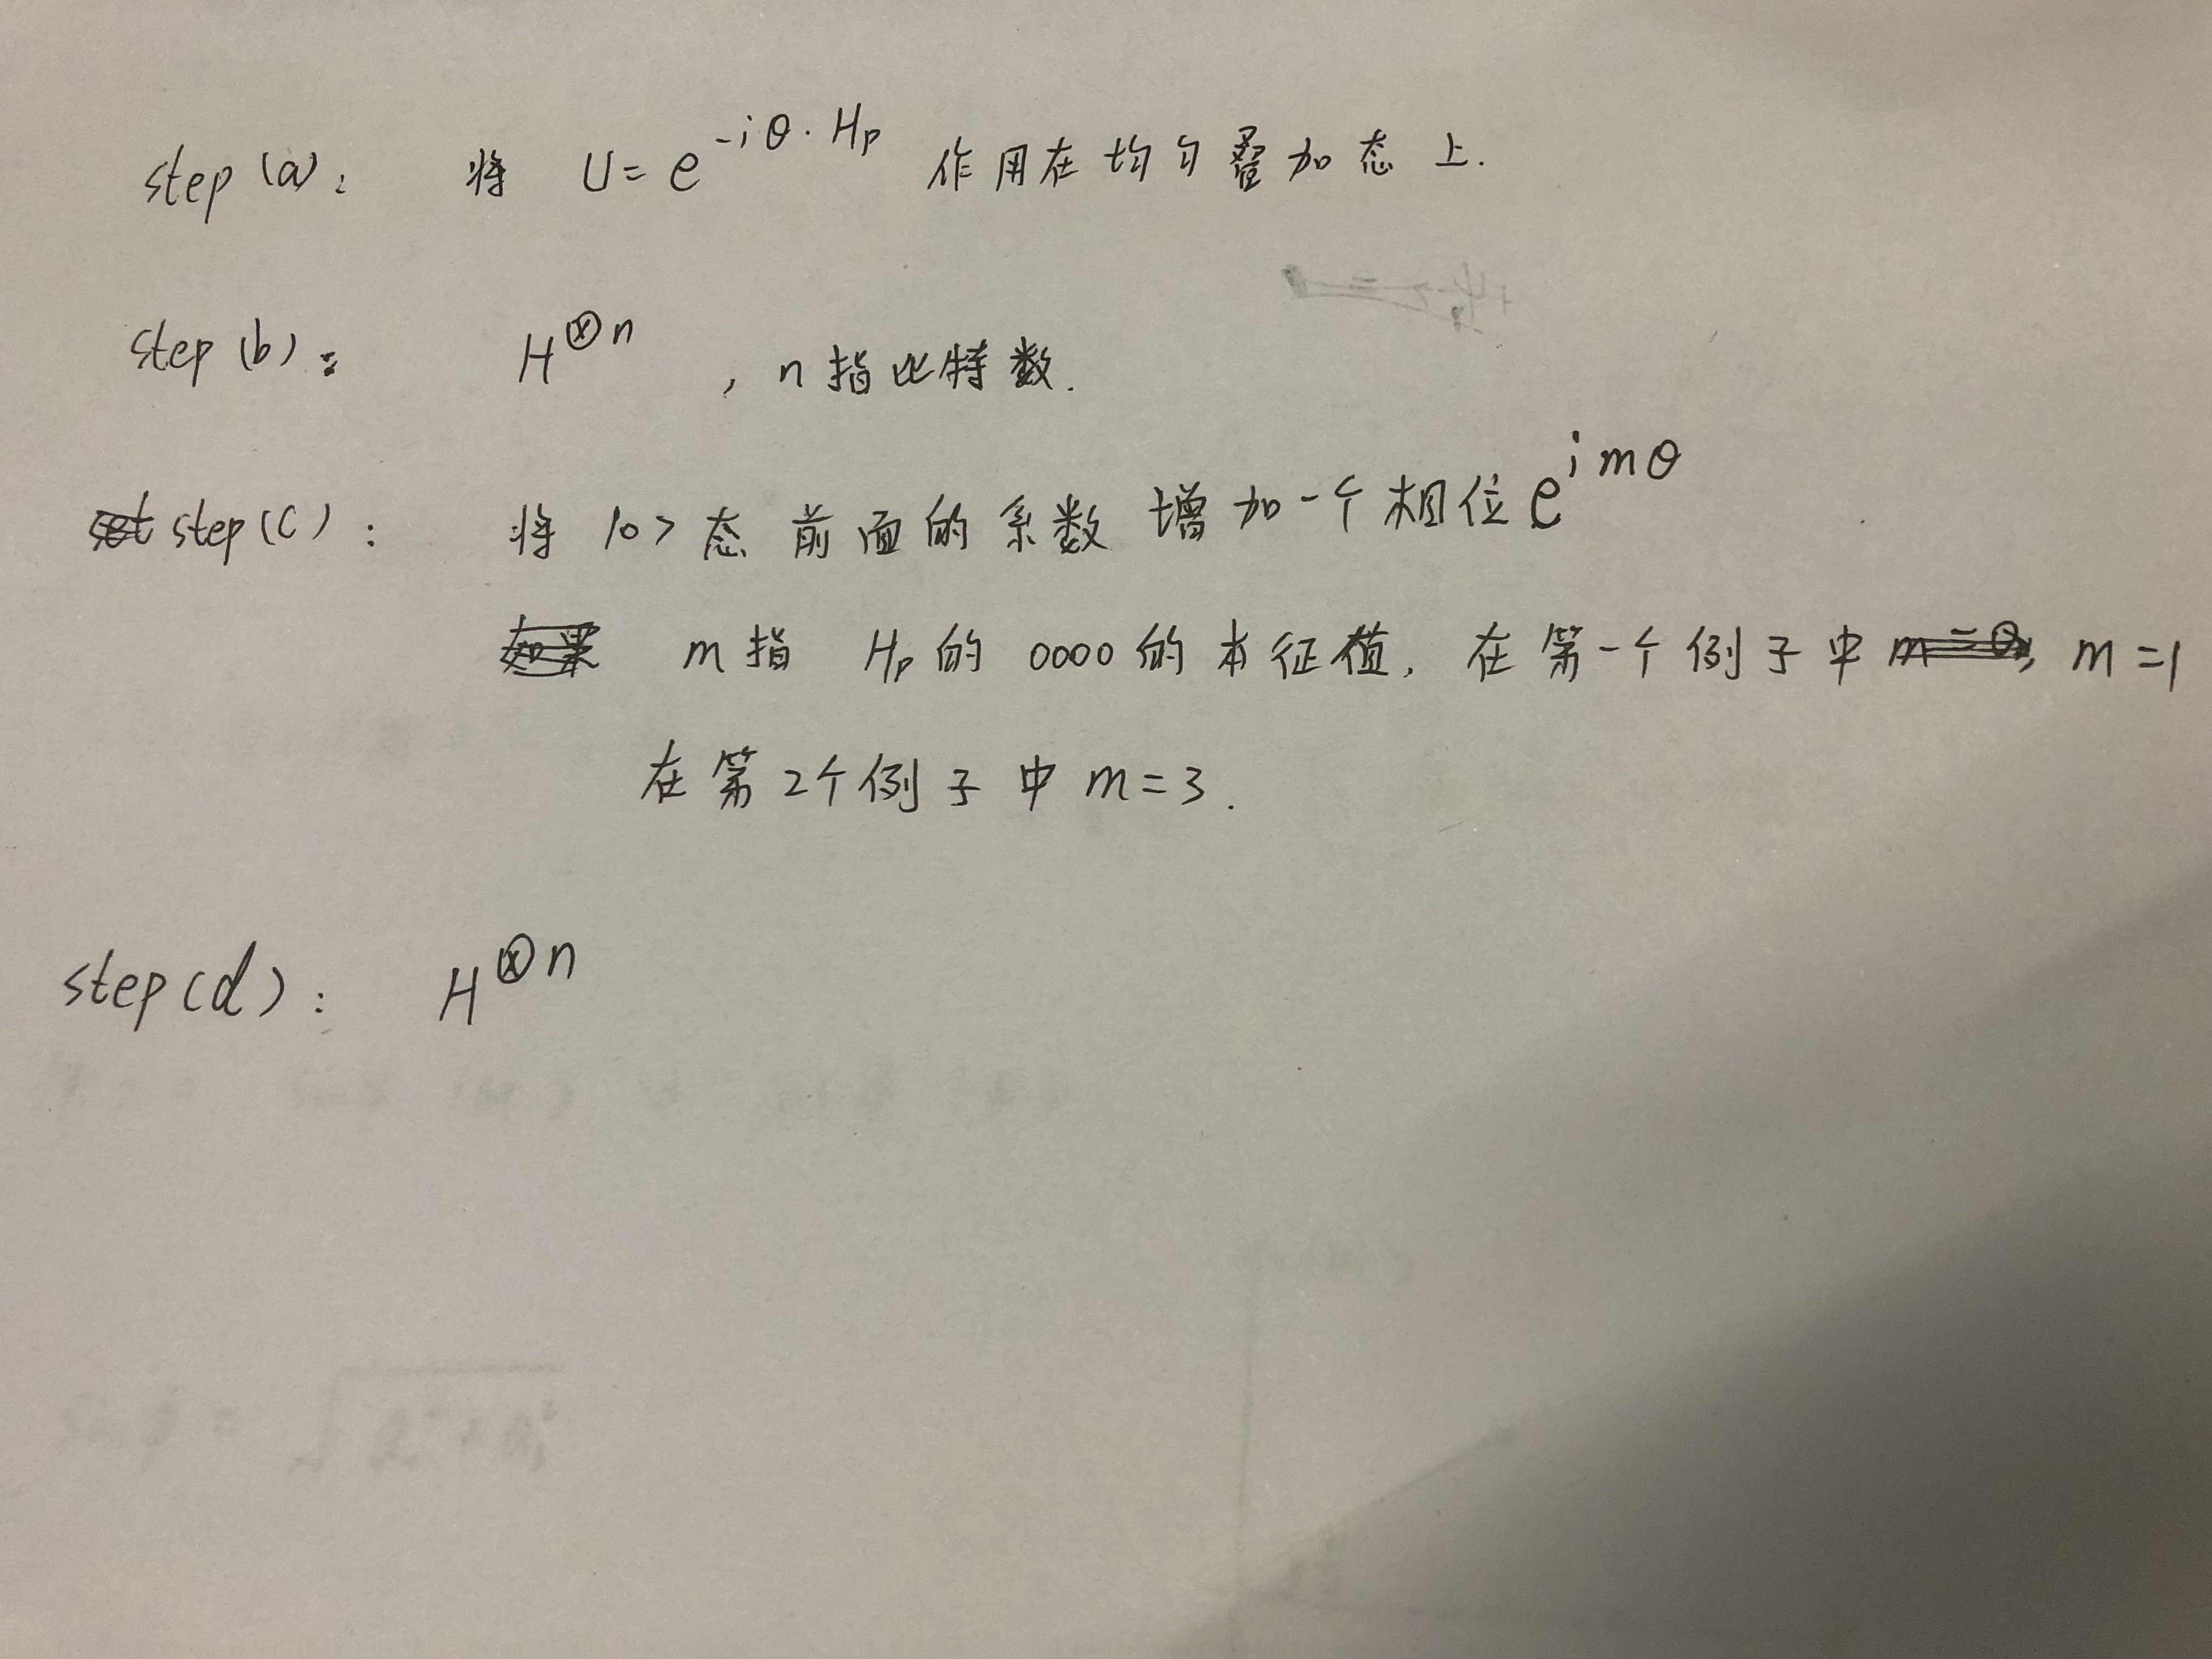 step (a): 将 U = e^{-iθ·H_p} 作用在均匀叠加态上.
step (b): H^{⊗n}, n指比特数.
step (c): 将 |0> 态前面的系数增加一个相位 e^{imθ}
m指 H_p 的 0000 的本征值, 在第一个例子中 m=1
在第2个例子中 m=3.
step (d): H^{⊗n}